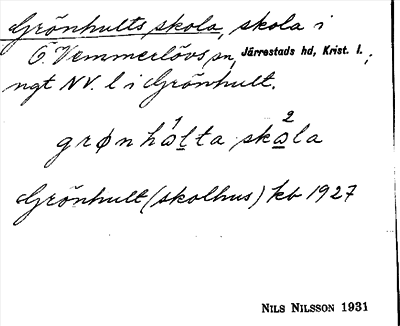 Grönhults skola, skola i
Ö. Vemmerlövs sn, Järrestads hd, Krist. l.;
ngt NV. l i Grönhult.
1 2
grønhɷlta skɷla
Grönhult (skolhus) kb 1927
NILS NILSSON 1931